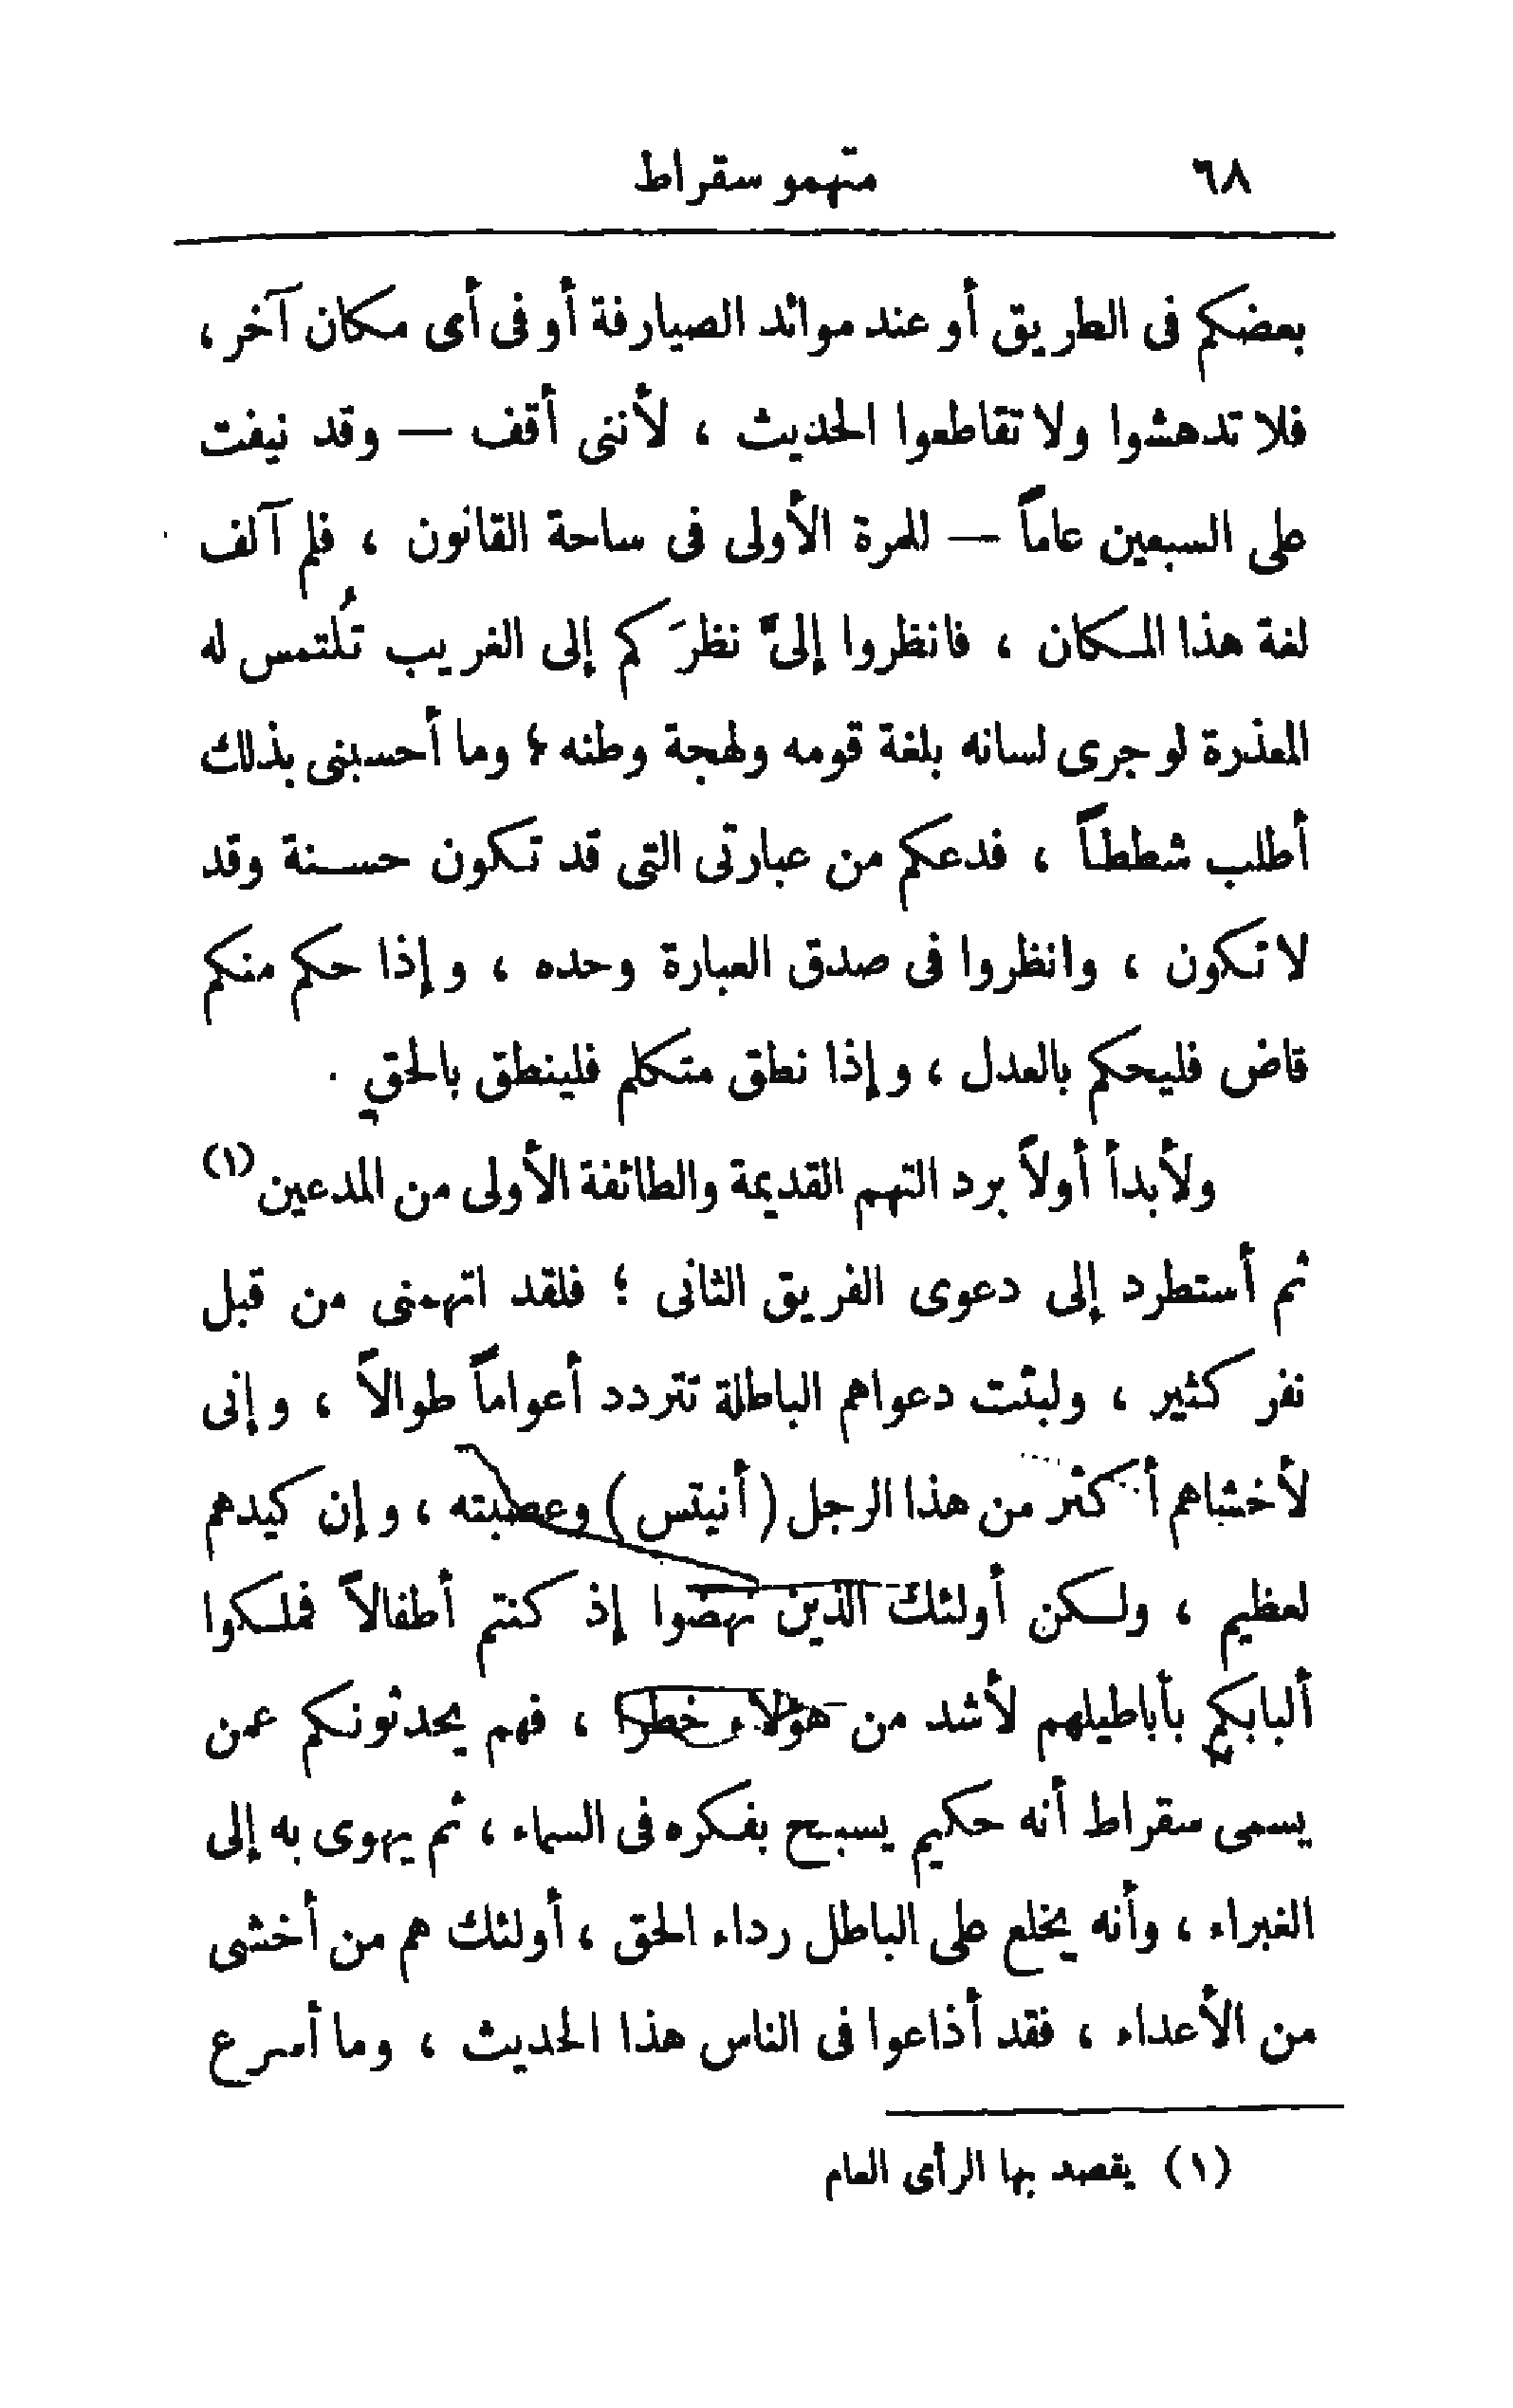 ٦٨
متهمو سقراط
بعضكم فى الطريق أو عند موائد الصيارفة أو فى أى مكان آخر ،
فلا تدهشوا ولا تقاطعوا الحديث ، لأننى أقف — وقد نيفت
على السبعين عاماً — للمرة الأولى فى ساحة القانون ، فلم آلف
لغة هذا المكان ، فانظروا إلىّ نظرَ كم إلى الغريب تُلتمس له
المعذرة لو جرى لسانه بلغة قومه ولهجة وطنه ؛ وما أحسبنى بذلك
أطلب شططاً ، فدعكم من عبارتى التى قد تكون حسنة وقد
لا تكون ، وانظروا فى صدق العبارة وحده ، وإذا حكم منكم
قاض فليحكم بالعدل ، وإذا نطق متكلم فلينطق بالحق .
ولأبدأ أولاً برد التهم القديمة والطائفة الأولى من المدعين (١)
ثم أستطرد إلى دعوى الفريق الثانى ؛ فلقد اتهمنى من قبل
نفر كثير ، ولبثت دعواهم الباطلة تتردد أعواماً طوالاً ، وإنى
لأخشاهم أكثر من هذا الرجل ( أنيتس ) وعصبته ، وإن كيدهم
لعظيم ، ولكن أولئك الذين نهضوا إذ كنتم أطفالاً فملكوا
ألبابكم بأباطيلهم لأشد من هؤلاء خطرا ، فهم يحدثونكم عمن
يسمى سقراط أنه حكيم يسبح بفكره فى السماء ، ثم يهوى به إلى
الغبراء ، وأنه يخلع على الباطل رداء الحق ، أولئك هم من أخشى
من الأعداء ، فقد أذاعوا فى الناس هذا الحديث ، وما أسرع
(١) يقصد بها الرأى العام